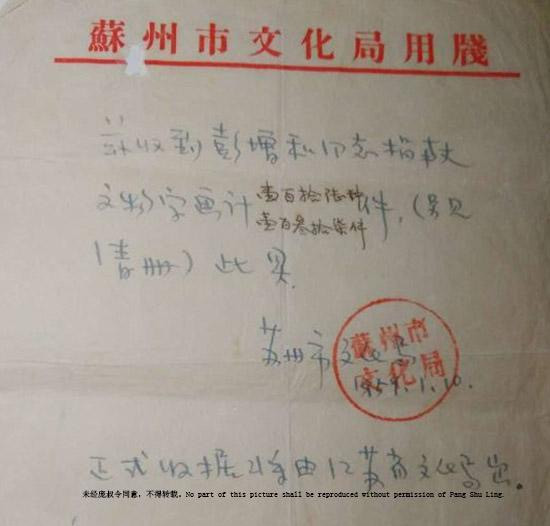 蘇州市文化局用牋
兹收到彭增和同志捐献
文物字画计壹百拾陆种件,(另见
壹百叁拾柒件
清册)此
苏州市文化局
蘇州市
文化局
1959.1.10.
正式收据将由江苏省文化局出。
未经庞叔令同意,不得转载。No part of this picture shall be reproduced without permission of Pang Shu Ling.